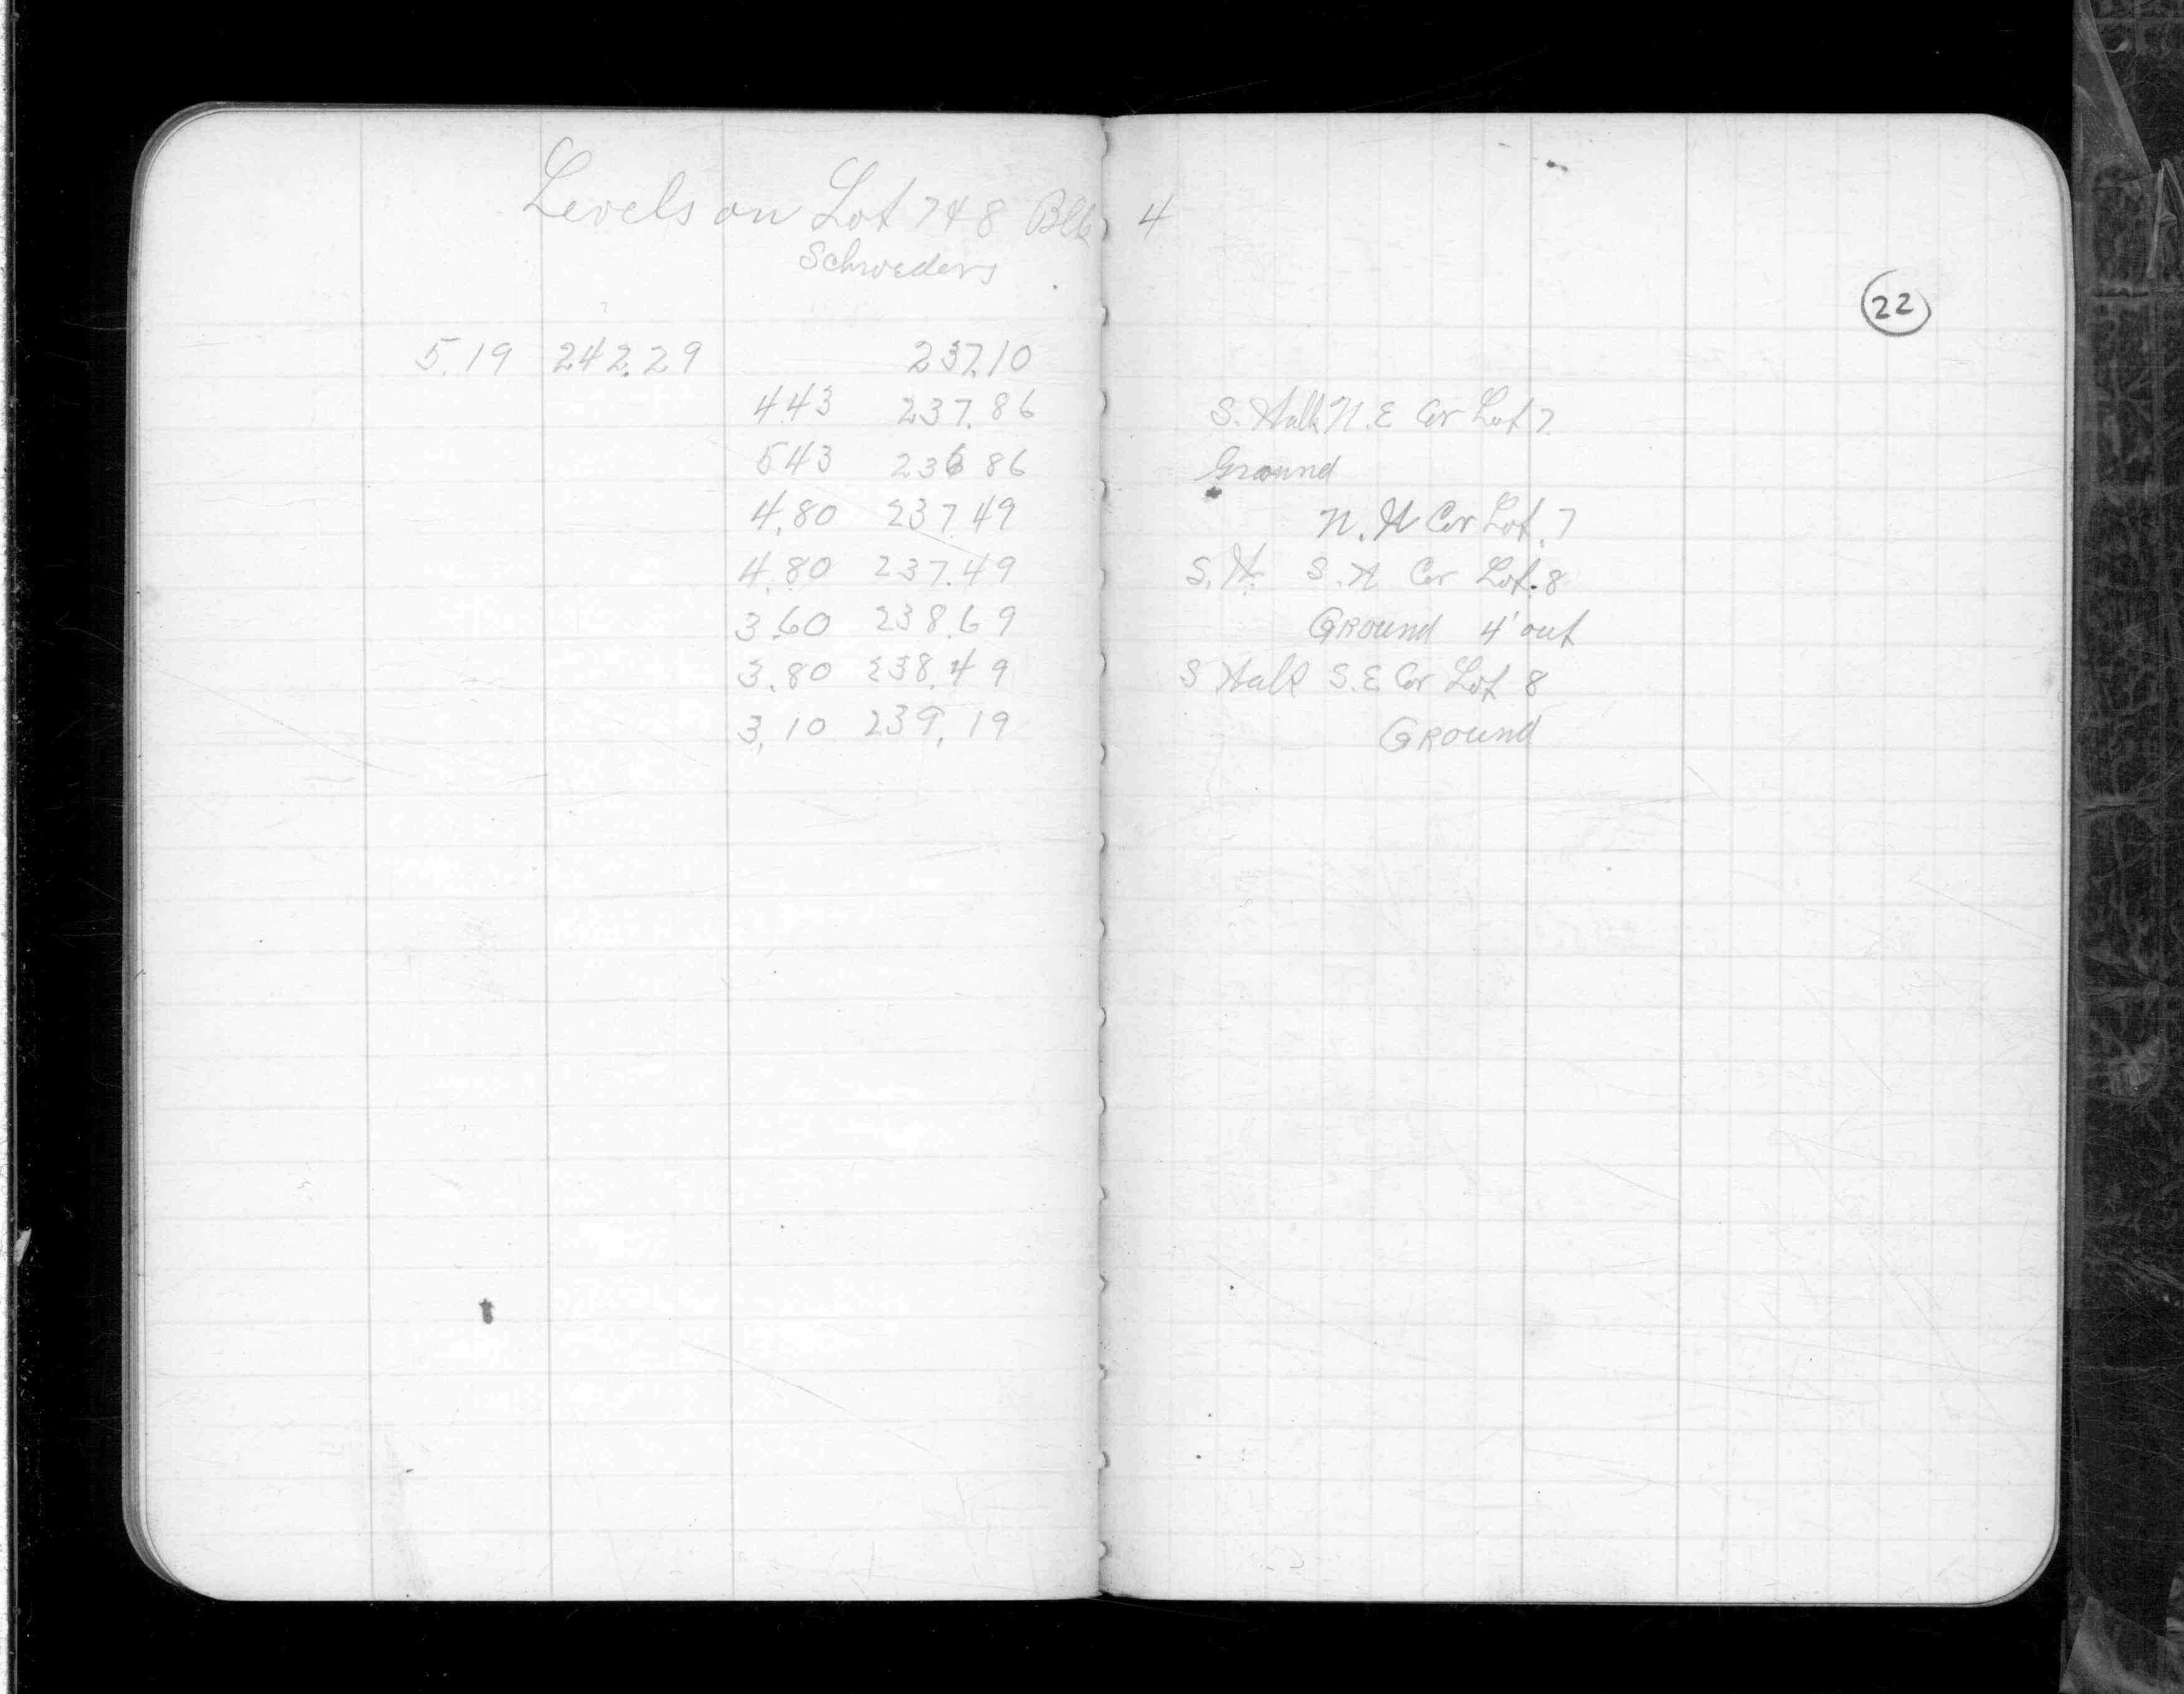 Levels on Lot 7 & 8 Blk 4
Schroeders
22
5.19 242.29 237.10
4.43 237.86 S. Walk N.E Cor Lot 7
5.43 236.86 Ground
4.80 237.49 N.W Cor Lot 7
4.80 237.49 S.W. S.W Cor Lot 8
3.60 238.69 Ground 4' out
3.80 238.49 S Walk S.E Cor Lot 8
3.10 239.19 Ground